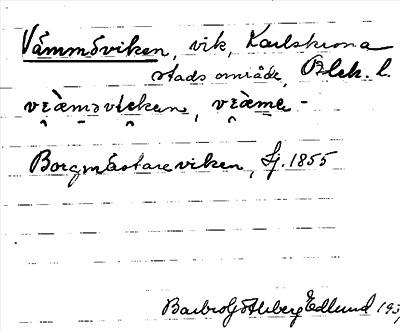 Vämmöviken, vik, Karlskrona
stads område, Blek. l.
Borgmästareviken, Sj. 1855
Barbro Göthberg Edlund 193